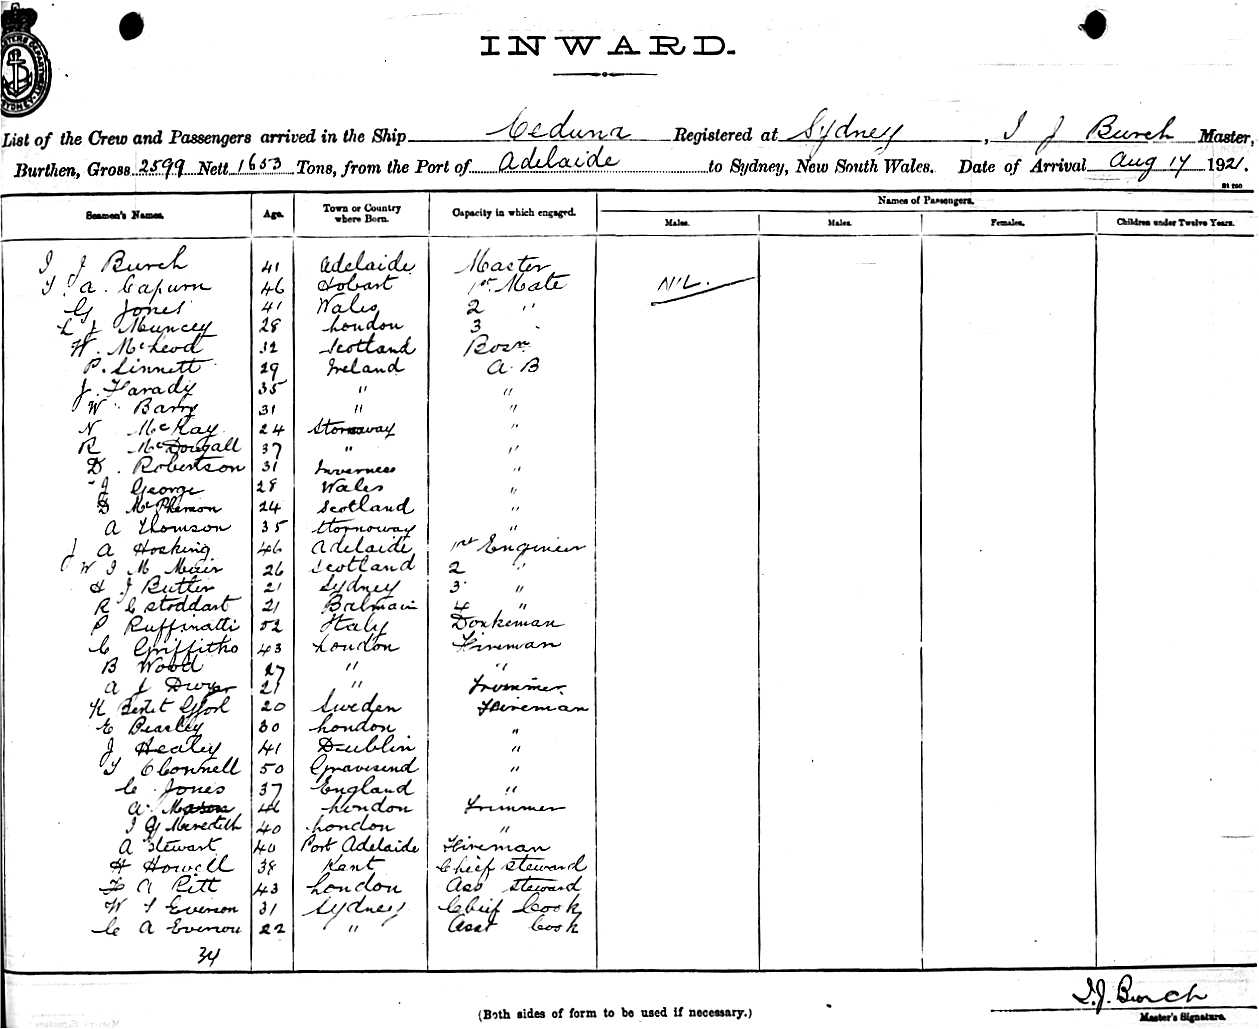 INWARD.
List of the Crew and Passengers arrived in the Ship Ceduna Registered at Sydney, I J Burch Master,
Burthen, Gross 2599 Nett 1653 Tons, from the Port of Adelaide to Sydney, New South Wales. Date of Arrival Aug 14 1921.
Seamen's Names. Age. Town or Country where Born. Capacity in which engaged. Names of Passengers.
Males. Males. Females. Children under Twelve Years.
I J Burch 41 Adelaide Master
A. Capurn 46 Hobart 1st Mate NIL.
G Jones 41 Wales 2 "
L J Muncey 28 London 3 "
W. McLeod 32 Scotland Bosn
P. Sinnett 29 Ireland A B
J. Farady 35 " "
W. Barry 31 " "
N McKay 24 Stornaway "
R McDougall 37 " "
D. Robertson 31 Inverness "
J George 28 Wales "
D McPherson 24 Scotland "
A Thomson 35 Stornoway "
J A Hosking 46 Adelaide 1st Engineer
W J M Muir 26 Scotland 2 "
H J Butler 21 Sydney 3 "
R C Stoddart 21 Balmain 4 "
P Ruffinatti 52 Italy Donkeman
C Griffiths 43 London Fireman
B Wood 27 " "
A J Dwyer 21 " Trimmer.
K 20 Sweden Fireman
E Bearley 30 London "
J Healey 41 Dublin "
T OConnell 50 Gravesend "
C Jones 37 England "
A. Mason 46 London Trimmer
I G Meredith 40 London "
A Stewart 40 Port Adelaide Fireman
H Howell 38 Kent Chief Steward
F A Pitt 43 London Ass Steward
W J Everson 31 Sydney Chief Cook
C A Everson 22 " Asst Cook
34
I.J. Burch
(Both sides of form to be used if necessary.) Master's Signature.